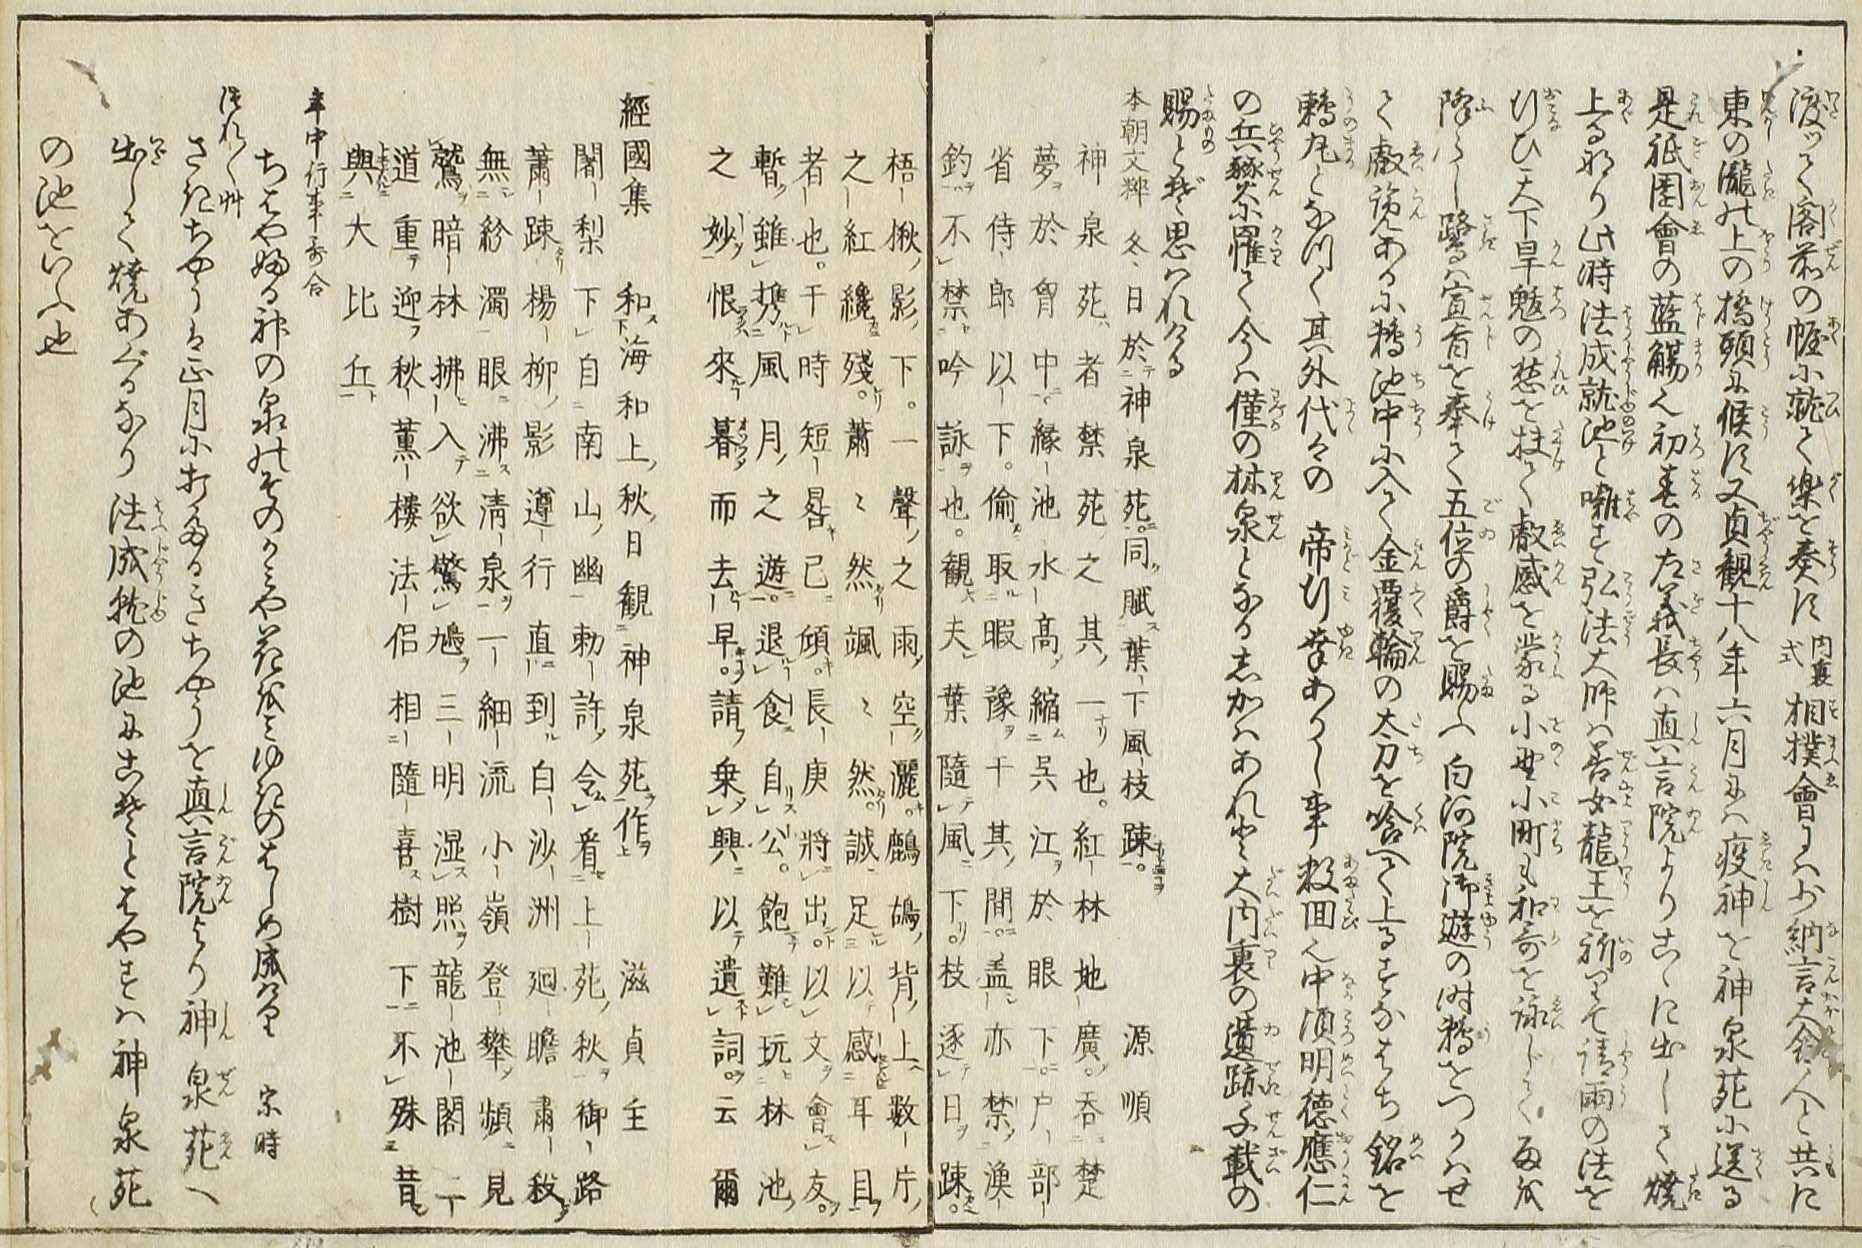 渡ッて閣前の幄に就て楽を奏す 内裏式 相撲會には少納言大舎人と共に
東の瀧の上の橋頭に候す又貞観十八年六月には疫神を神泉苑に送る
是祇園會の藍觴也初春の左義長は真言院よりこゝに出して焼
上るなり此時法成就池と囃す弘法大師は善女龍王を祈りて請雨の法を
行ひ天下旱魃の愁を扶て叡感を蒙る小野小町も和歌を詠じて雨を
降らし鷺は宣旨を奉て五位の爵を賜ふ 白河院御遊の時鵜をつかはせ
て叡覧あるに鵜池中に入て金覆輪の太刀を喰へて上るすなはち銘を
鵜丸となづく其外代々の 帝行幸ありし事数回也中頃明徳應仁
の兵燹に罹て今は僅の林泉となるしかはあれど大内裏の遺跡千載の
賜とぞ思はれける
本朝文粹 冬日於神泉苑同賦葉下風枝疎 源順
神泉苑者禁苑之其一也紅林地廣呑楚
夢於胷中緑池水高縮呉江於眼下戸部
省侍郎以下偷取暇豫于其間盖亦禁漁
釣不禁吟詠也觀夫葉隨風下枝逐日疎
梧楸影下一聲之雨空灑鷓鴣背上数片
之紅纔残蕭〻然颯〻然誠足以感耳目
者也于時短晷已傾長庚將出以文會友
暫雖携風月之遊退食自公飽難玩林池
之妙恨來暮而去早請乗興以遺詞云爾
經國集 和海和上秋日観神泉苑作 滋貞主
闍梨下自南山幽勅許令看上苑秋御路
蕭疎楊柳影遵行直到白沙洲廻瞻肅殺
無紛濁眼沸清泉一細流小嶺登攀頻見
鷲暗林拂入欲驚鳩三明湿照龍池閣一
道重迎秋薫樓法侶相隨喜樹下不殊昔
與大比丘
年中行事歌合
ちはやふる神の泉のそのかみや花をみゆきのはしめ成けり 宗時
つれ〴〵艸
さぎちやうは正月に打たるぎちやうを真言院より神泉苑へ
出して焼あぐるなり 法成就の池にこそとはやすは神泉苑
の池をいふ也